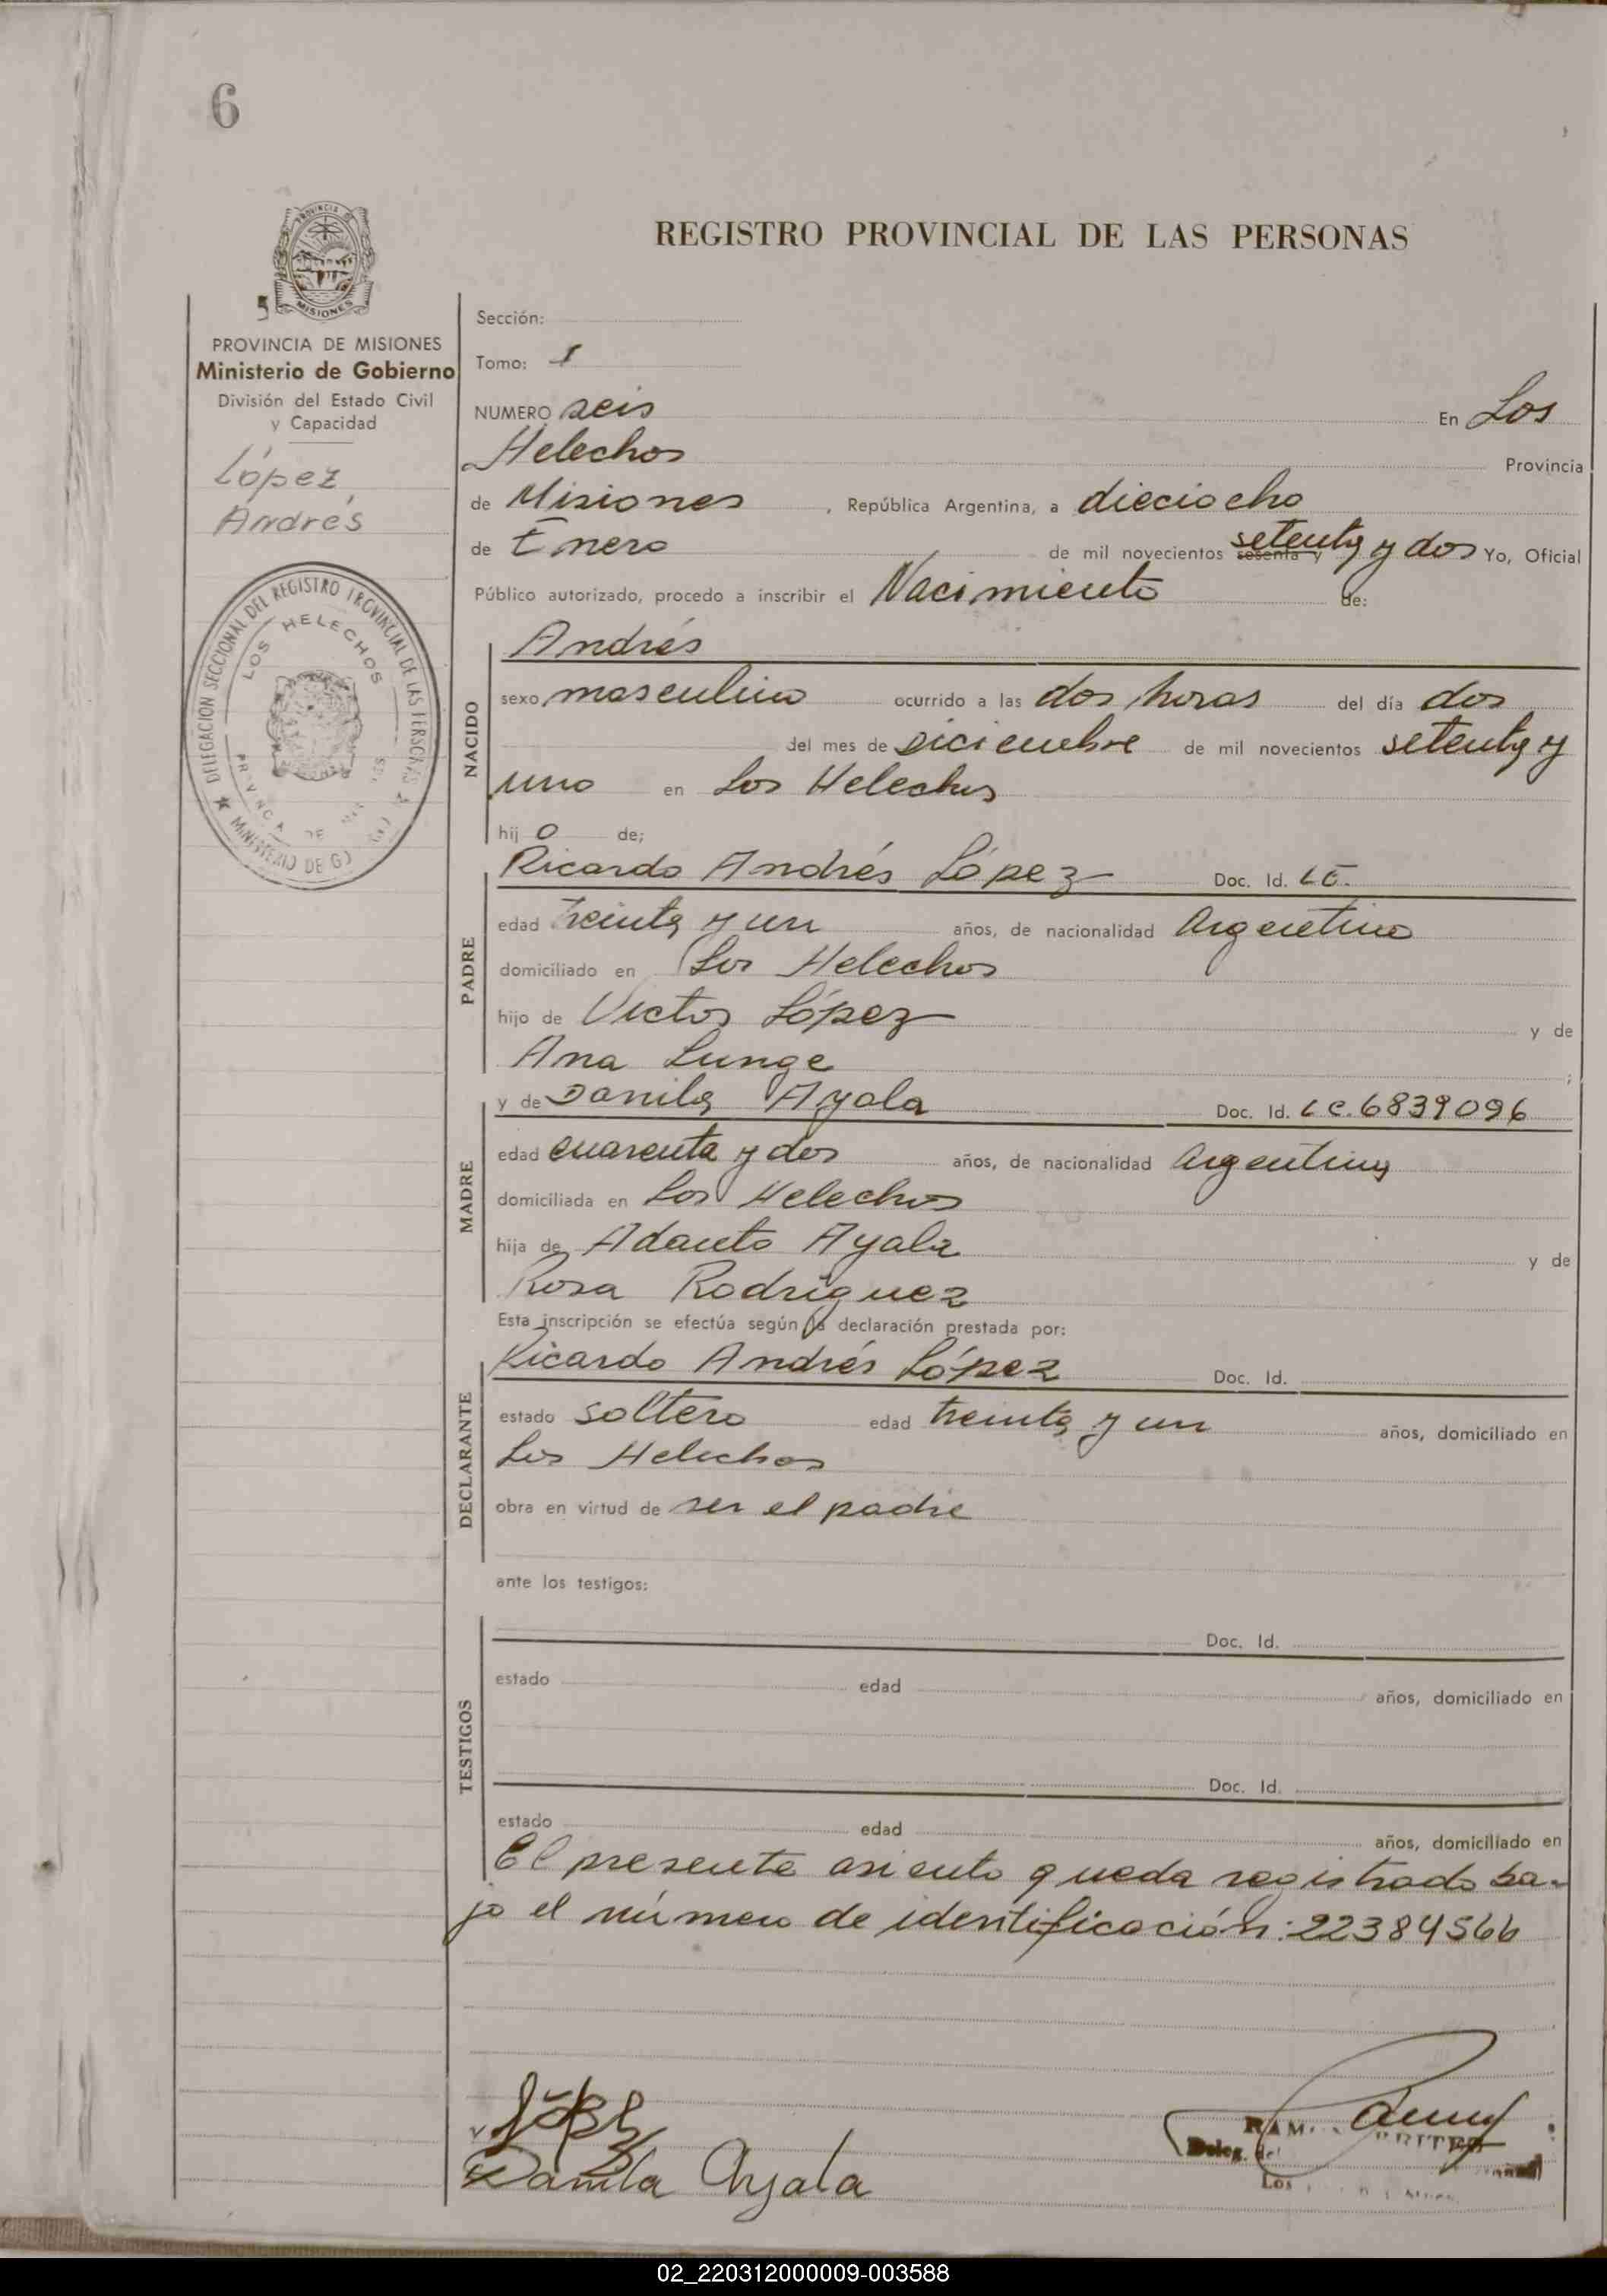 6
PROVINCIA DE
MISIONES
5
REGISTRO PROVINCIAL DE LAS PERSONAS
PROVINCIA DE MISIONES
Ministerio de Gobierno
División del Estado Civil
y Capacidad
López,
Andrés
DELEGACION SECCIONAL DEL REGISTRO PROVINCIAL DE LAS PERSONAS
LOS HELECHOS
PROVINCIA DE
MINISTERIO DE
Sección:
Tomo: 1
NUMERO seis En Los
Helechos Provincia
de Misiones, República Argentina, a dieciocho
de Enero de mil novecientos sesenta y setenta y dos Yo, Oficial
Público autorizado, procedo a inscribir el Nacimiento de:
NACIDO
Andrés
sexo masculino ocurrido a las dos horas del día dos
del mes de diciembre de mil novecientos setenta y
uno en Los Helechos
hij o de;
PADRE
Ricardo Andrés López Doc. Id. LE.
edad treinta y un años, de nacionalidad Argentino
domiciliado en Los Helechos
hijo de Victor López y de
Ana Lunge ;
MADRE
y de Danila Ayala Doc. Id. LC. 6839096
edad cuarenta y dos años, de nacionalidad argentina
domiciliada en Los Helechos
hija de Adauto Ayala y de
Rosa Rodriguez
Esta inscripción se efectúa según la declaración prestada por:
DECLARANTE
Ricardo Andrés López Doc. Id.
estado soltero edad treinta y un años, domiciliado en
Los Helechos
obra en virtud de ser el padre
ante los testigos:
TESTIGOS
Doc. Id.
estado edad años, domiciliado en
Doc. Id.
estado edad años, domiciliado en
El presente asiento queda registrado ba-
jo el número de identificación: 22384566
López
Danila Ayala
Deleg. del
Los
02_220312000009-003588